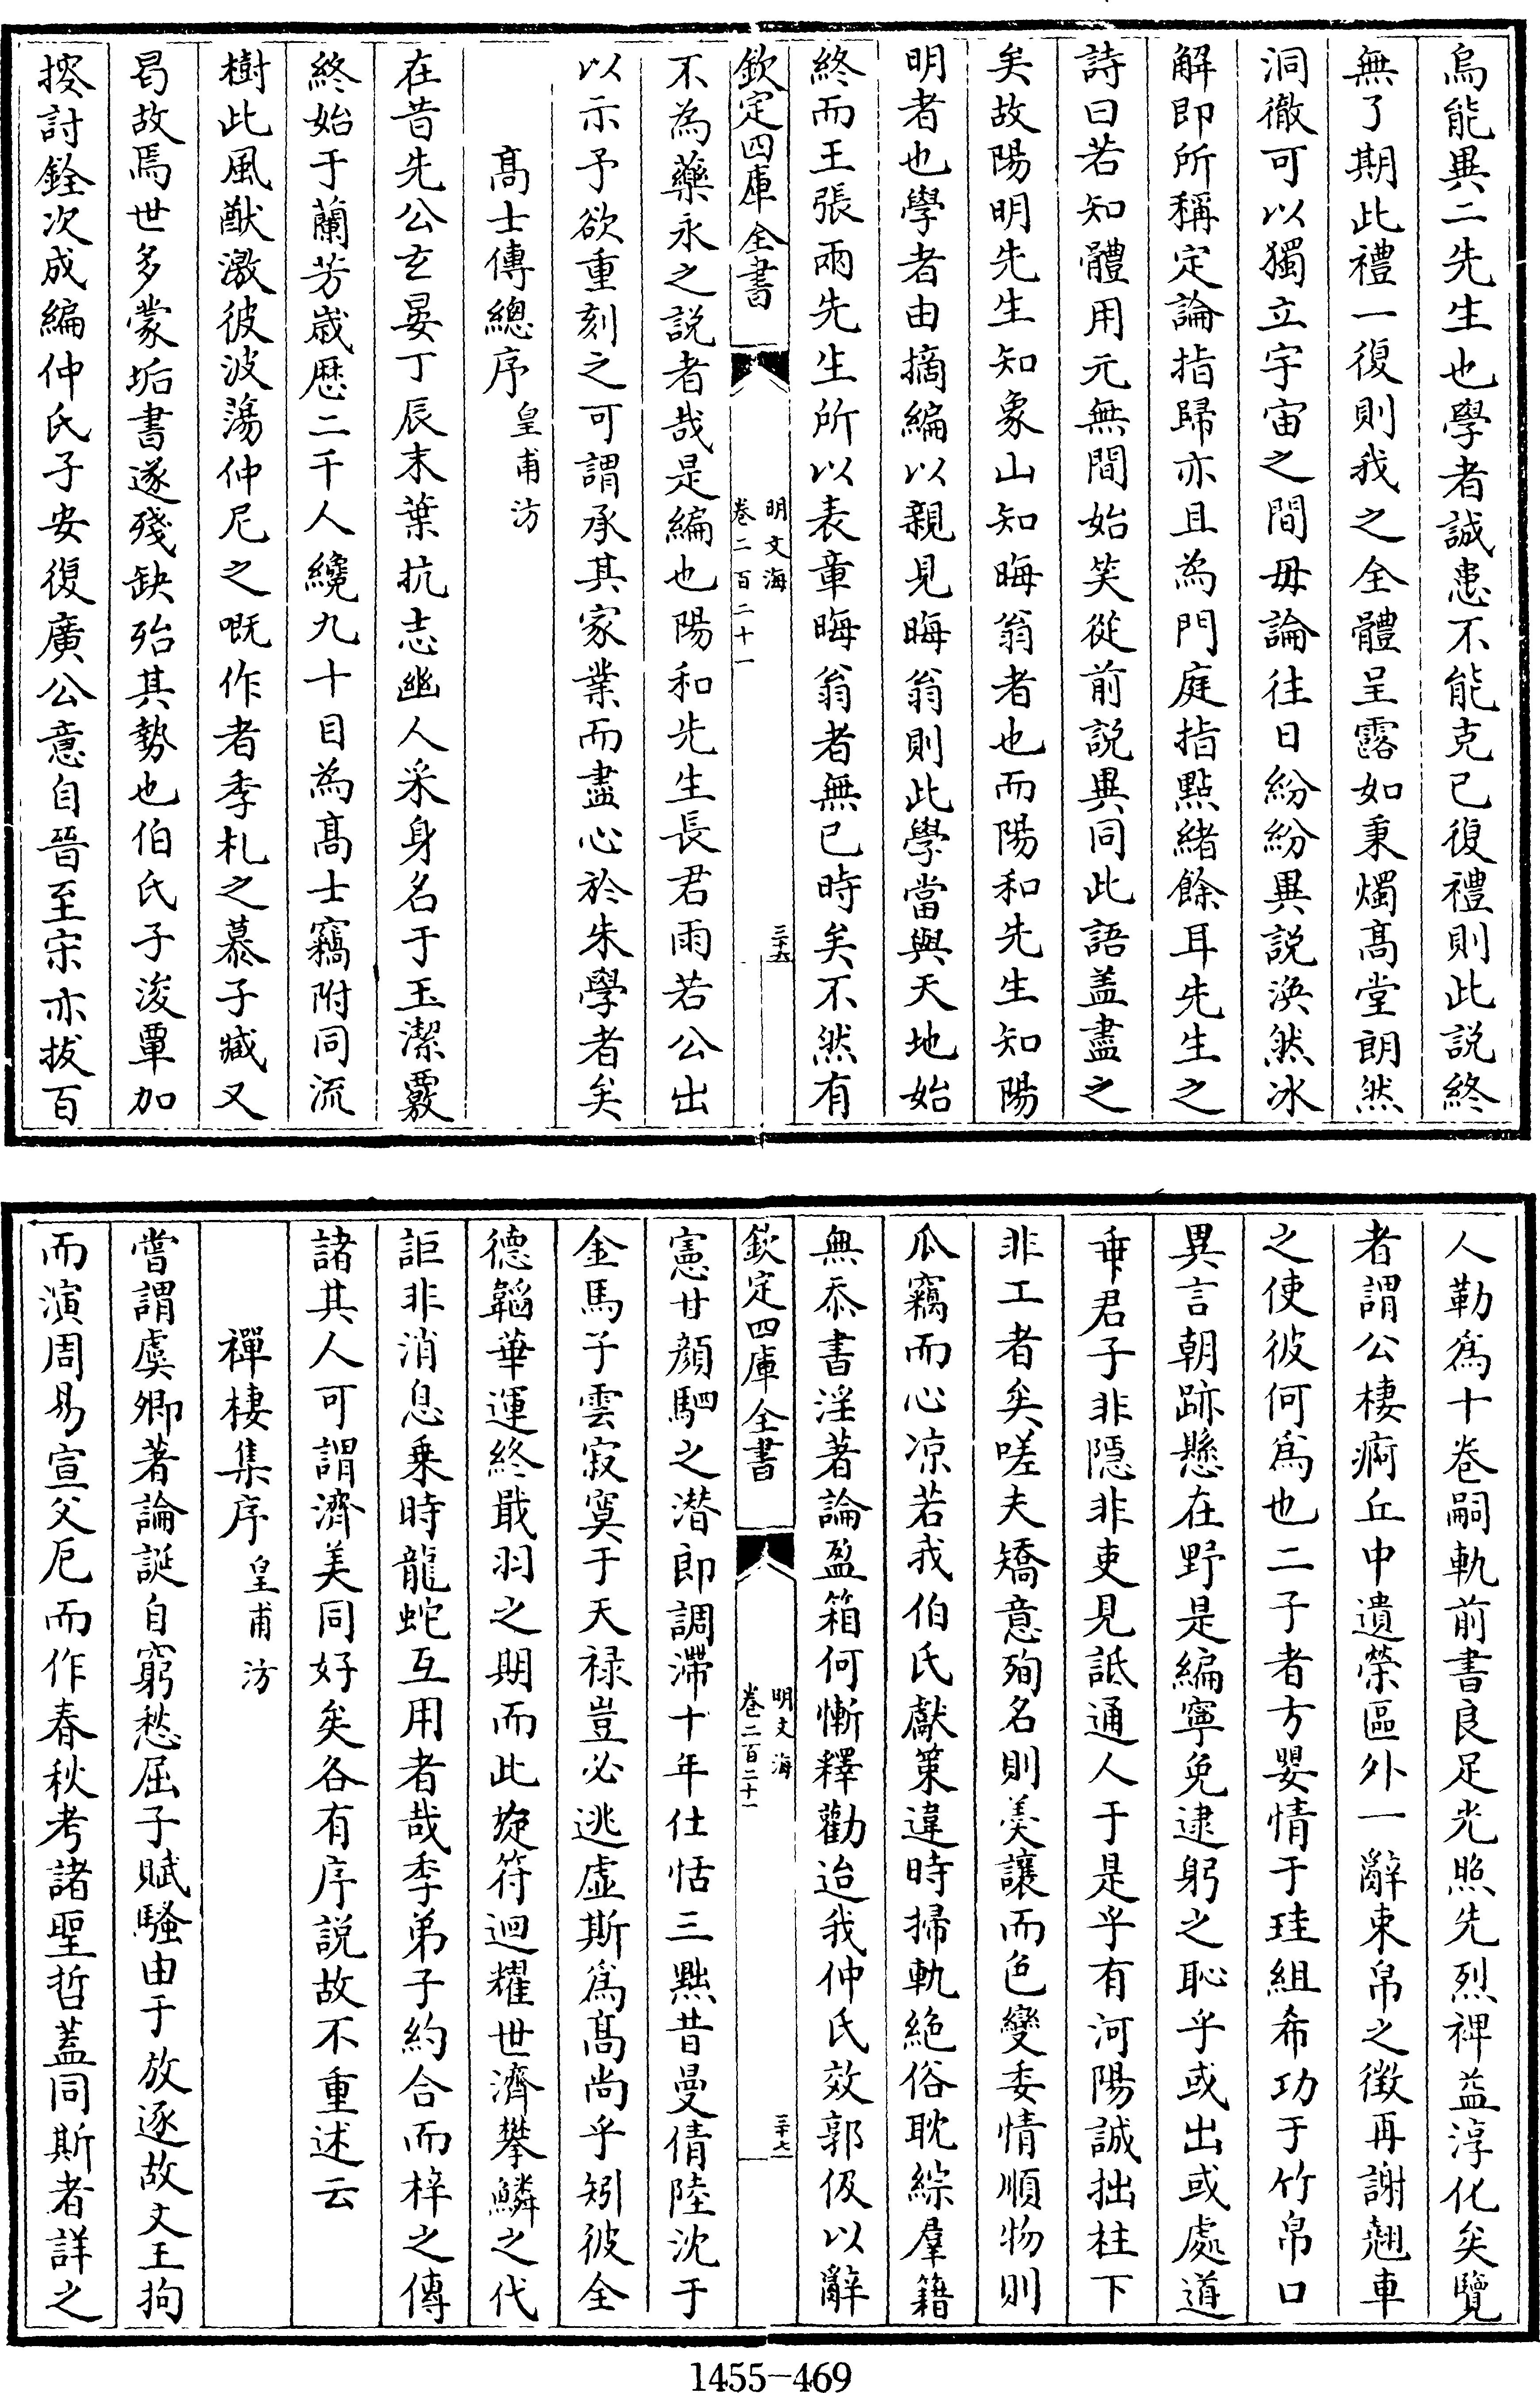 烏能異二先生也學者誠患不能克已復禮則此説終
無了期此禮一復則我之全體呈露如秉燭髙堂朗然
洞徹可以獨立宇宙之間毋論往日紛紛異説渙然冰
解即所稱定論指歸亦且為門庭指點緒餘耳先生之
詩曰若知體用元無間始笑從前説異同此語盖盡之
矣故陽明先生知象山知晦翁者也而陽和先生知陽
明者也學者由摘編以親見晦翁則此學當與天地始
終而王張兩先生所以表章晦翁者無已時矣不然有
欽定四庫全書
明文海
卷二百二十一
三十六
不為藥永之説者哉是編也陽和先生長君雨若公出
以示予欲重刻之可謂承其家業而盡心於朱學者矣
髙士傳總序皇甫汸
在昔先公玄晏丁辰末葉抗志幽人采身名于玉潔覈
終始于蘭芳歲歴二千人纔九十目為髙士竊附同流
樹此風猷激彼波蕩仲尼之嘅作者季札之慕子臧又
曷故焉世多蒙垢書遂殘缺殆其勢也伯氏子浚覃加
搜討銓次成編仲氏子安復廣公意自晉至宋亦拔百
人勒爲十巻嗣軌前書良足光照先烈裨益淳化矣覽
者謂公棲痾丘中遺榮區外一辭束帛之徴再謝翹車
之使彼何爲也二子者方嬰情于珪組希功于竹帛口
異言朝跡懸在野是編寧免逮躬之恥乎或出或處道
垂君子非隱非吏見詆通人于是乎有河陽誠拙柱下
非工者矣嗟夫矯意殉名則羙讓而色變委情順物則
瓜竊而心凉若我伯氏獻策違時掃軌絶俗耽綜羣籍
無忝書淫著論盈箱何慚釋勸迨我仲氏效郭伋以辭
欽定四庫全書
明文海
卷二百二十一
三十七
憲甘顔駟之潜郎調滯十年仕恬三黜昔曼倩陸沈于
金馬子雲寂寞于天禄豈必逃虚斯爲髙尚乎矧彼全
德韜華運終戢羽之期而此旋符迴耀世濟攀鱗之代
詎非消息乗時龍蛇互用者哉季弟子約合而梓之傳
諸其人可謂濟美同好矣各有序説故不重述云
禪棲集序皇甫汸
嘗謂虞卿著論誕自窮愁屈子賦騷由于放逐故文王拘
而演周易宣父厄而作春秋考諸聖哲蓋同斯者詳之
1455-469